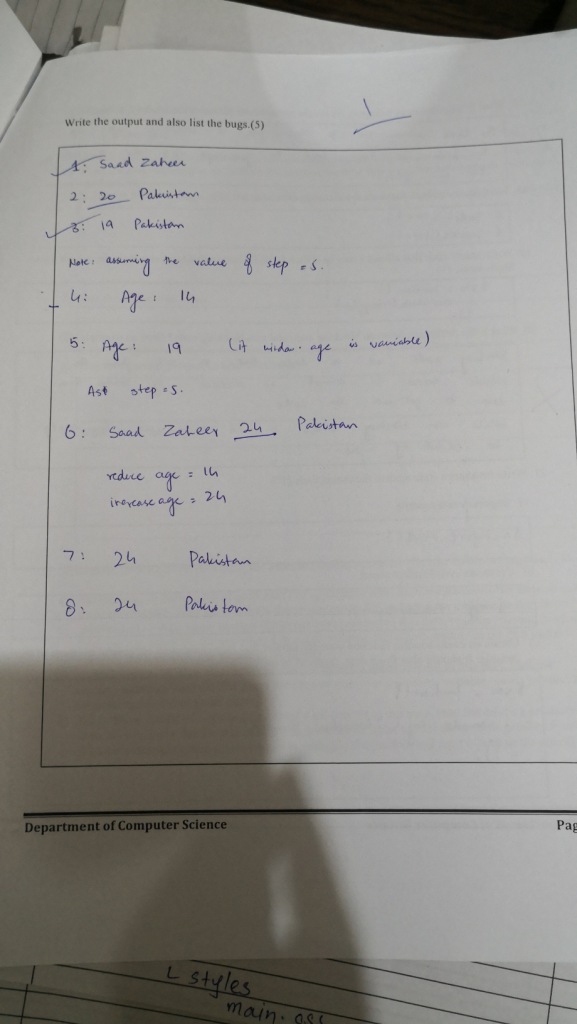 Write the output and also list the bugs.(5)
1
1: Saad Zaheer
2: 20 Pakistan
3: 19 Pakistan
Note: assuming the value of step = 5.
4: Age: 14
5: Age: 19 (if age is variable)
step = 5.
6: Saad Zaheer 24 Pakistan
reduce age = 14
increase age = 24
7: 24 Pakistan
8: 24 Pakistan
Department of Computer Science
Pag
styles
main.